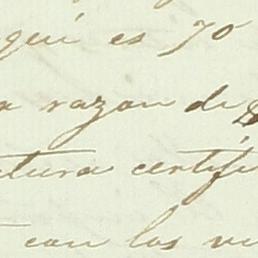 aquí es 70
a razon de
tura certifi
con los vi